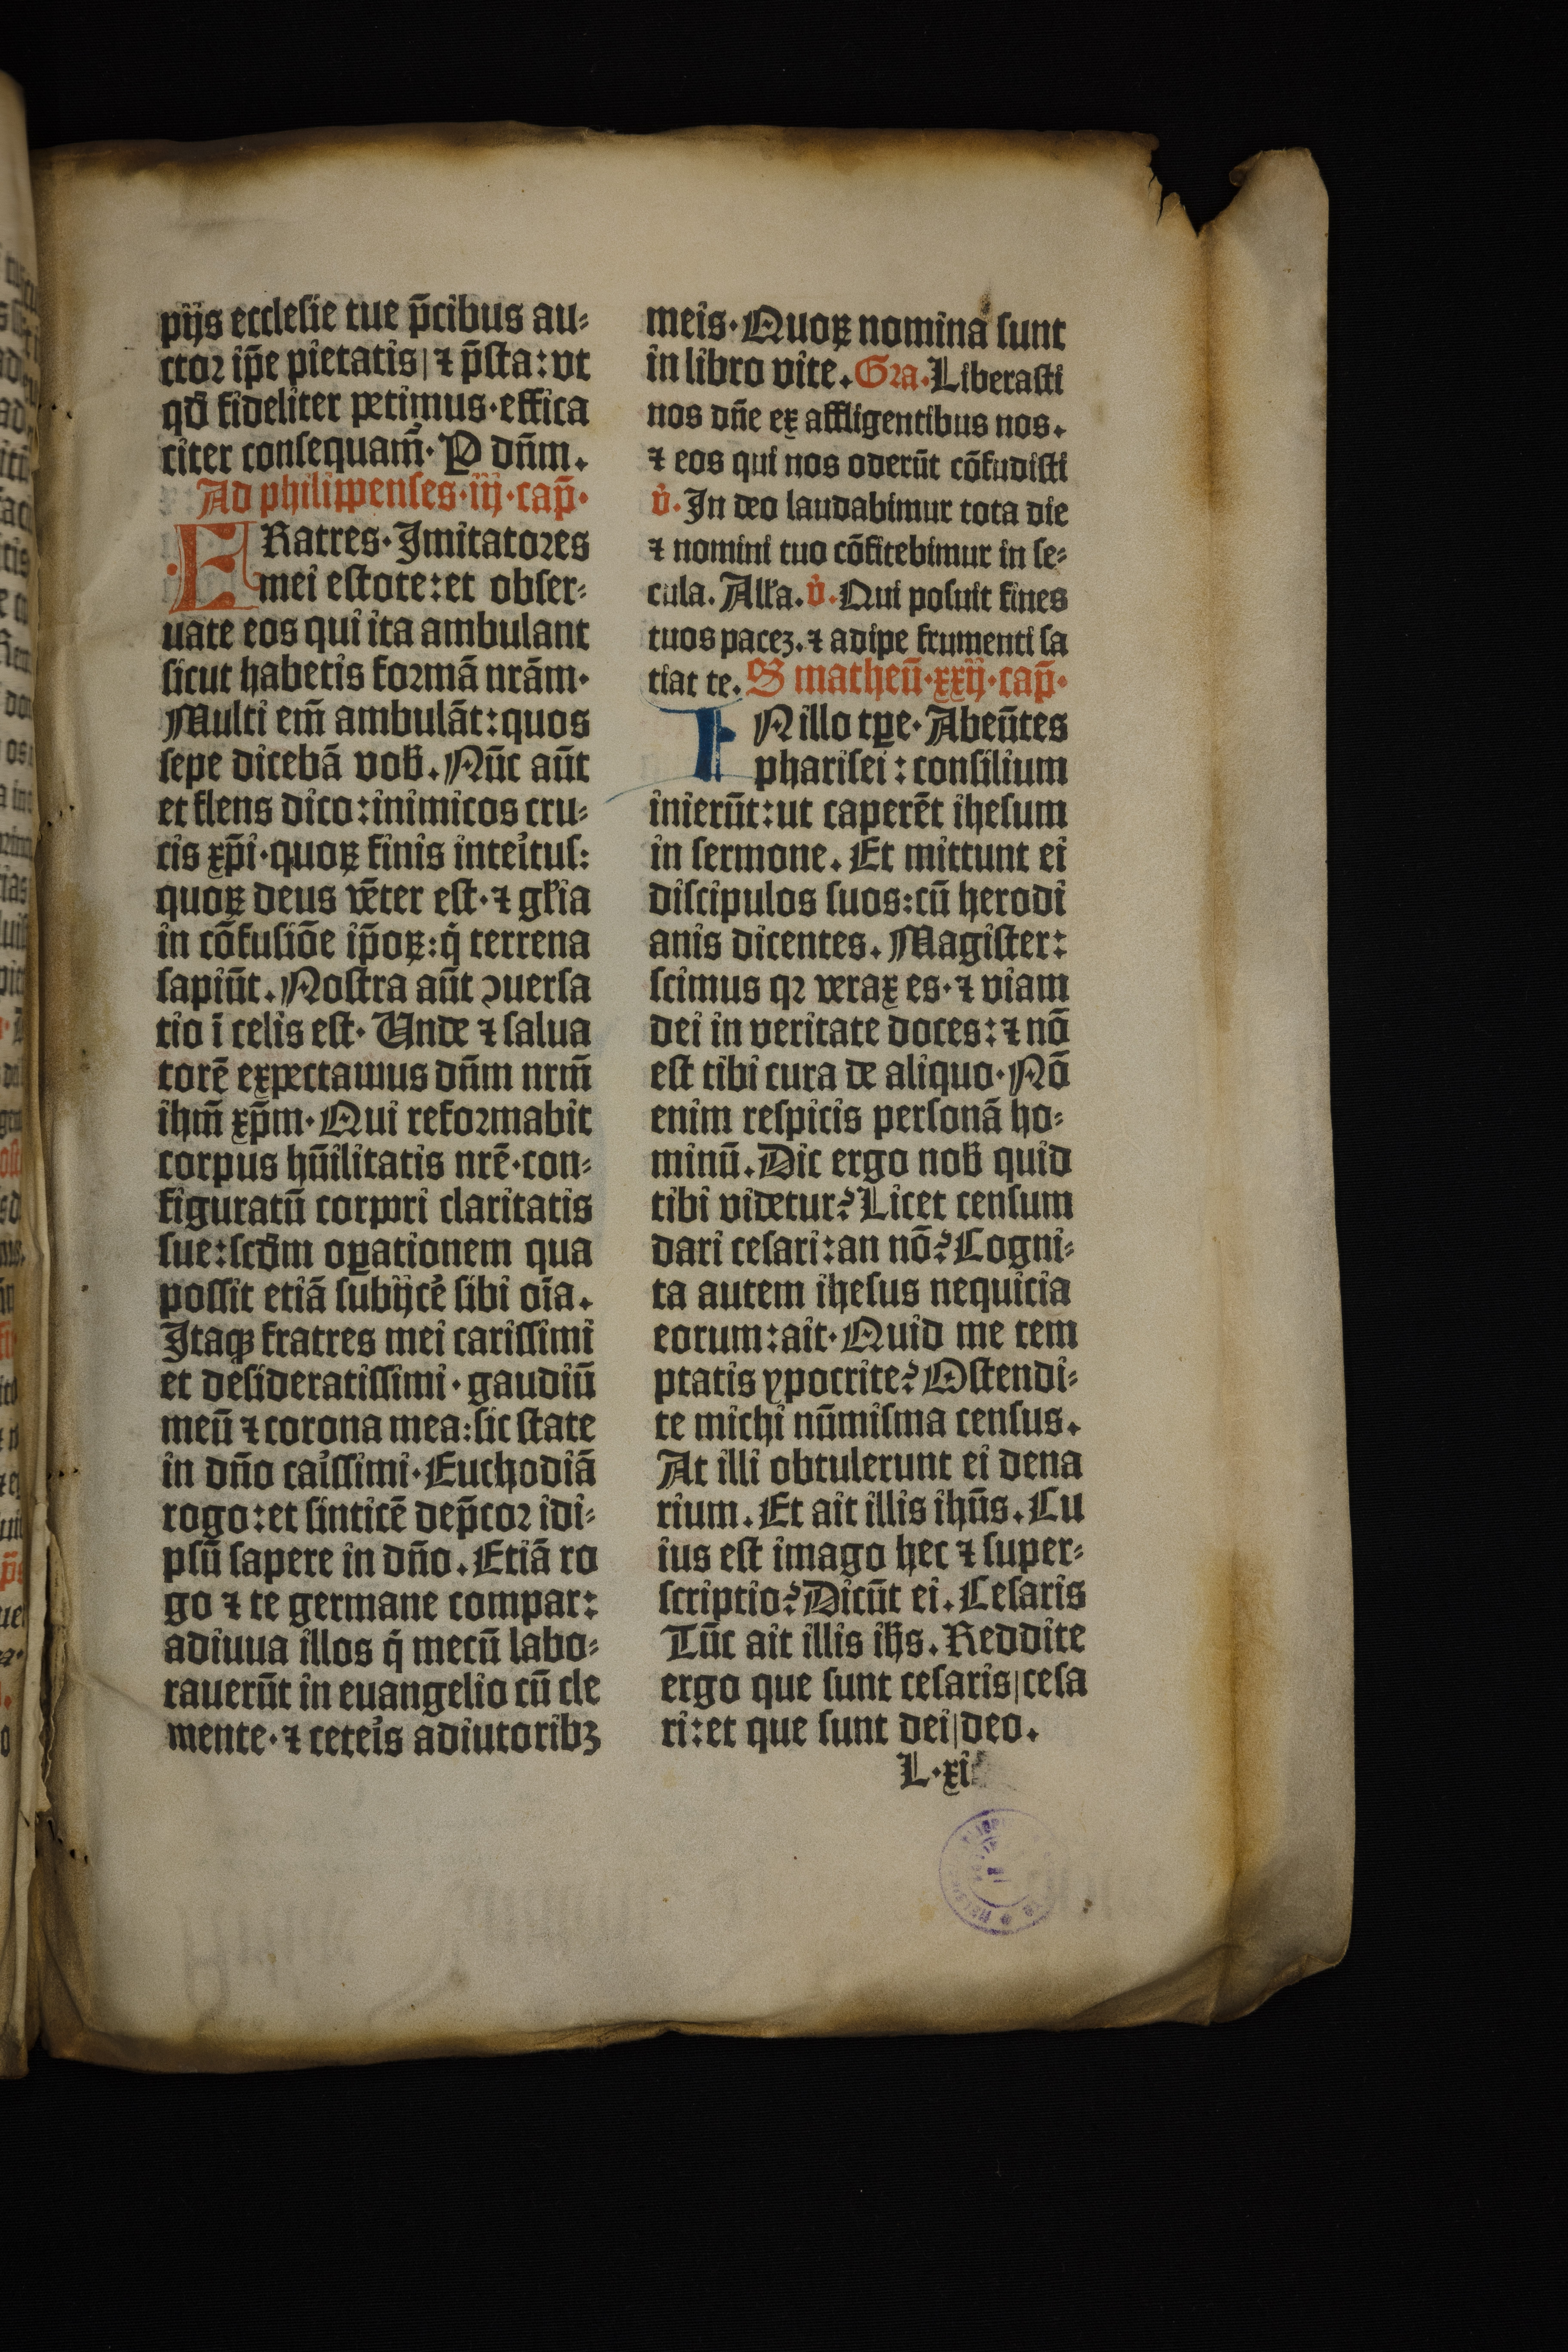 pijs ecclesie tue p̄cibus au⸗
ctoꝛ ip̄e pietatis| ⁊ p̄sta: vt
qđ fideliter petimus·effica
citer consequam̃· P dn̄m.
Ad philippenses·iij·cap̄·
FRatres·Imitatoꝛes
mei estote:et obser⸗
uate eos qui ita ambulant
sicut habetis foꝛmā nrām·
Multi em̄ ambulāt:quos
sepe dicebā vob̄. Nūc aūt
et flens dico:inimicos cru⸗
cis xp̄i·quoꝝ finis inteⁱtus:
quoꝝ deus vēter est·⁊ gl̄ia
in cōfusiōe ip̄oꝝ:q̄ terrena
sapiūt. Nostra aūt ꝯuersa
tio ī celis est· Unde ⁊ salua
torē expectamus dn̄m nrm̄
ihm̄ xp̄m· Qui refoꝛmabit
corpus hūilitatis nrē·con⸗
figuratū corpori claritatis
sue:scđm oꝑationem qua
possit etiā subijcē sibi oīa.
Itaqꝫ fratres mei carissimi
et desideratissimi·gaudiū
meū ⁊ corona mea:sic state
in dn̄o caⁱssimi·Euchodiā
rogo:et sinticē dep̄coꝛ idi⸗
psū sapere in dn̄o. Etiā ro
go ⁊ te germane compar:
adiuua illos q̄ mecū labo⸗
rauerūt in euangelio cū cle
mente·⁊ ceteⁱs adiutoribꝫ
meis·Quoꝝ nomina sunt
in libro vite. Gꝛa·Liberasti
nos dn̄e ex affligentibus nos.
⁊ eos qui nos oderūt cōfudisti
v̇. In deo laudabimur tota die
⁊ nomini tuo cōfitebimur in se⸗
cula. Alľa. v̇. Qui posuit fines
tuos pacez. ⁊ adipe frumenti sa
tiat te. S matheū·xxij·cap̄·
INillo tꝑe·Abeūtes
pharisei: consilium
inierūt:ut caperēt ihesum
in sermone. Et mittunt ei
discipulos suos:cū herodi
anis dicentes. Magister:
scimus qꝛ verax es·⁊ viam
dei in veritate doces:⁊ nō
est tibi cura de aliquo·Nō
enim respicis personā ho⸗
minū. Dic ergo nob̄ quid
tibi videtur? Licet censum
dari cesari:an nō? Cogni⸗
ta autem ihesus nequicia
eorum:ait·Quid me tem
ptatis ypocrite? Ostendi⸗
te michi nūmisma census.
At illi obtulerunt ei dena
rium. Et ait illis ihūs. Cu
ius est imago hec ⁊ super⸗
scriptio? Dicūt ei. Cesaris
Tūc ait illis ih̄s. Reddite
ergo que sunt cesaris|cesa
ri:et que sunt dei|deo.
L·xi